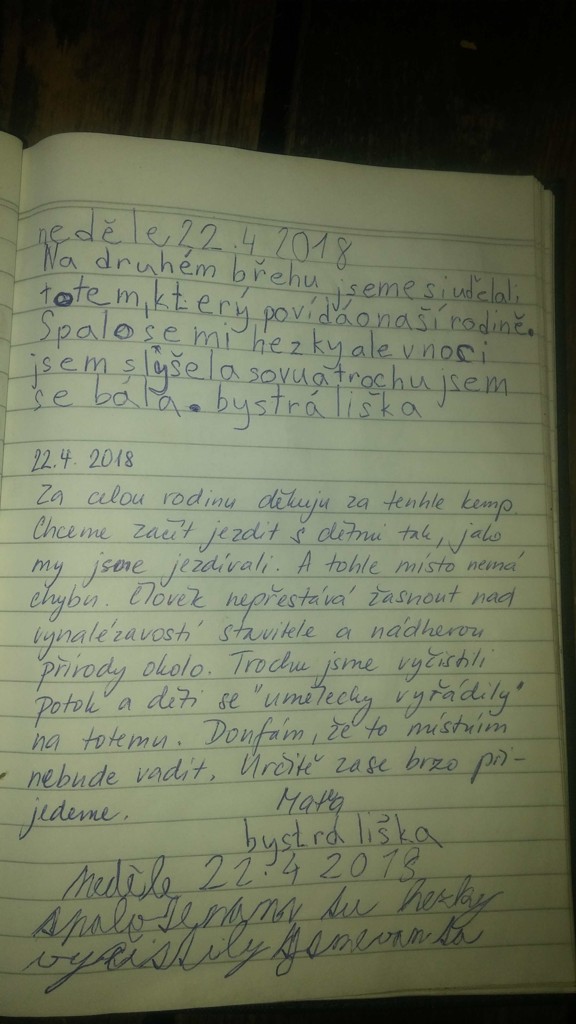 neděle 22.4 2018
Na druhém břehu jseme si udělali
totem, který povídá o naší rodině.
Spalo se mi hezky ale v noci
jsem slyšela sovu a trochu jsem
se bála. bystrá liška
22.4. 2018
Za celou rodinu děkuju za tenhle kemp.
Chceme začít jezdit s dětmi tak, jako
my jsme jezdívali. A tohle místo nemá
chybu. Člověk nepřestává žasnout nad
vynalézavostí stavitele a nádherou
přírody okolo. Trochu jsme vyčistili
potok a děti se "umělecky vyřádily"
na totemu. Doufám, že to místním
nebude vadit. Určitě zase brzo při-
jedeme.
bystrá liška
Neděle 22.4 2018
spalo se nam tu hezky
vyčistily jsme vam